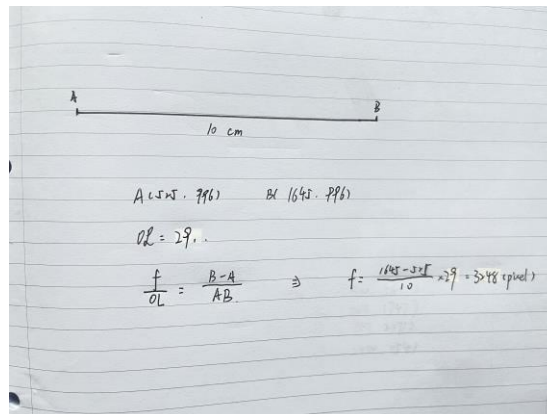 A B
10 cm
A(525, 996) B(1645, 996)
OL = 29..
f/OL = (B-A)/AB. ⇒ f = (1645-525)/10 ×29 = 3248 (pixel)